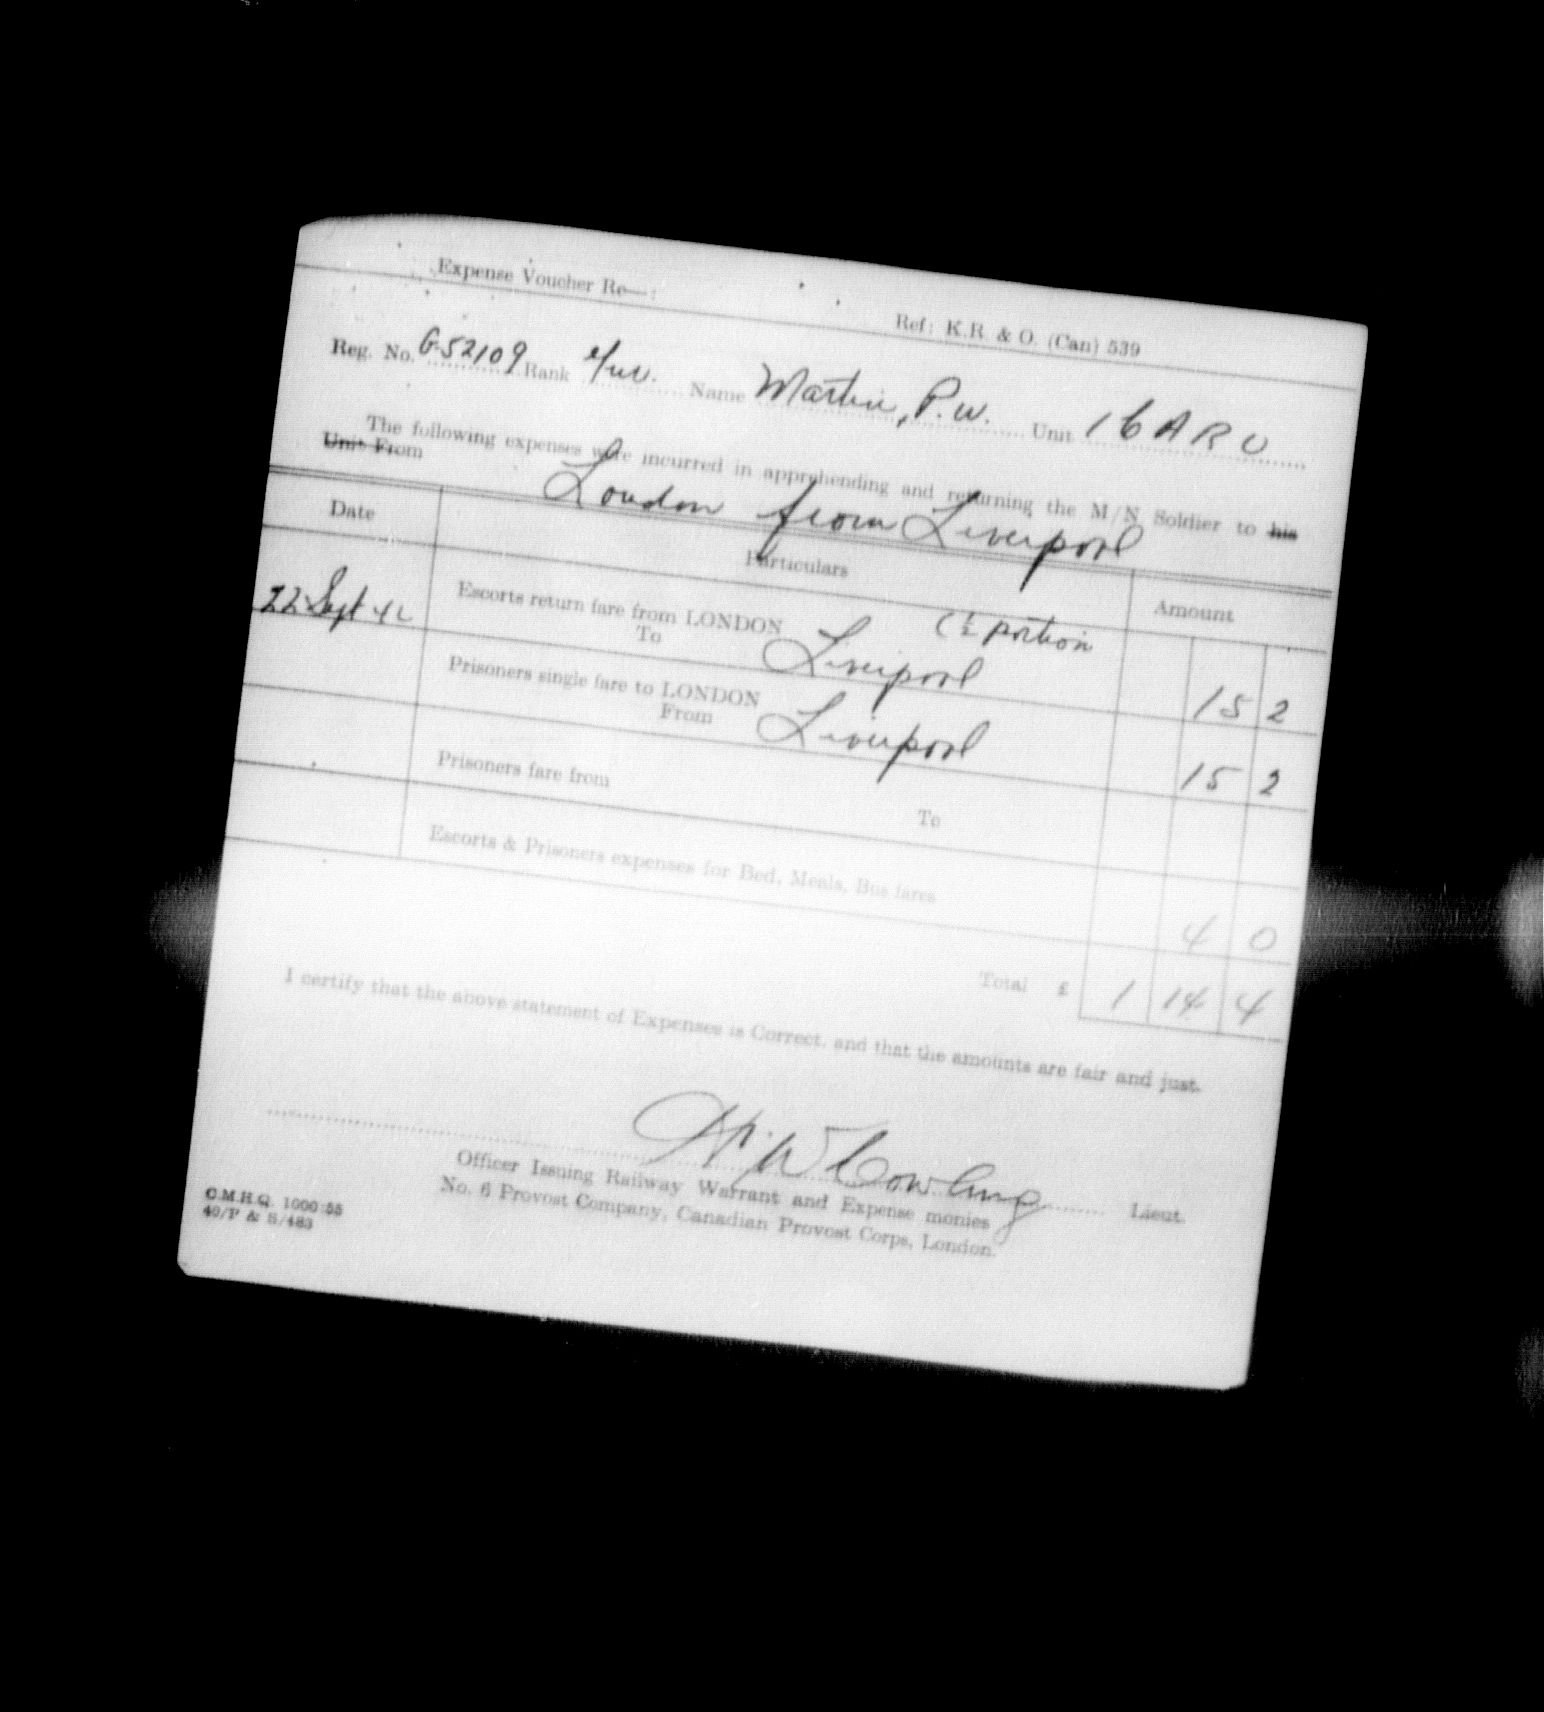 Expense Voucher Re—:
Ref: K.R. & O. (Can) 539
Reg. No. G-52109 Rank Name Martin, P.W. Unit 16 ARU
The following expenses were incurred in apprehending and returning the M/N Soldier to his
Unit From London from Liverpool
Date Particulars Amount
22 Sept 42 Escorts return fare from LONDON (½ portion
To Liverpool 15 2
Prisoners single fare to LONDON
From Liverpool 15 2
Prisoners fare from To
Escorts & Prisoners expenses for Bed, Meals, Bus fares 4 0
Total £ 1 14 4
I certify that the above statement of Expenses is Correct, and that the amounts are fair and just.
W Cowling Lieut.
Officer Issuing Railway Warrant and Expense monies
No. 6 Provost Company, Canadian Provost Corps, London.
C.M.H.Q. 1000/55
40/P & S/483